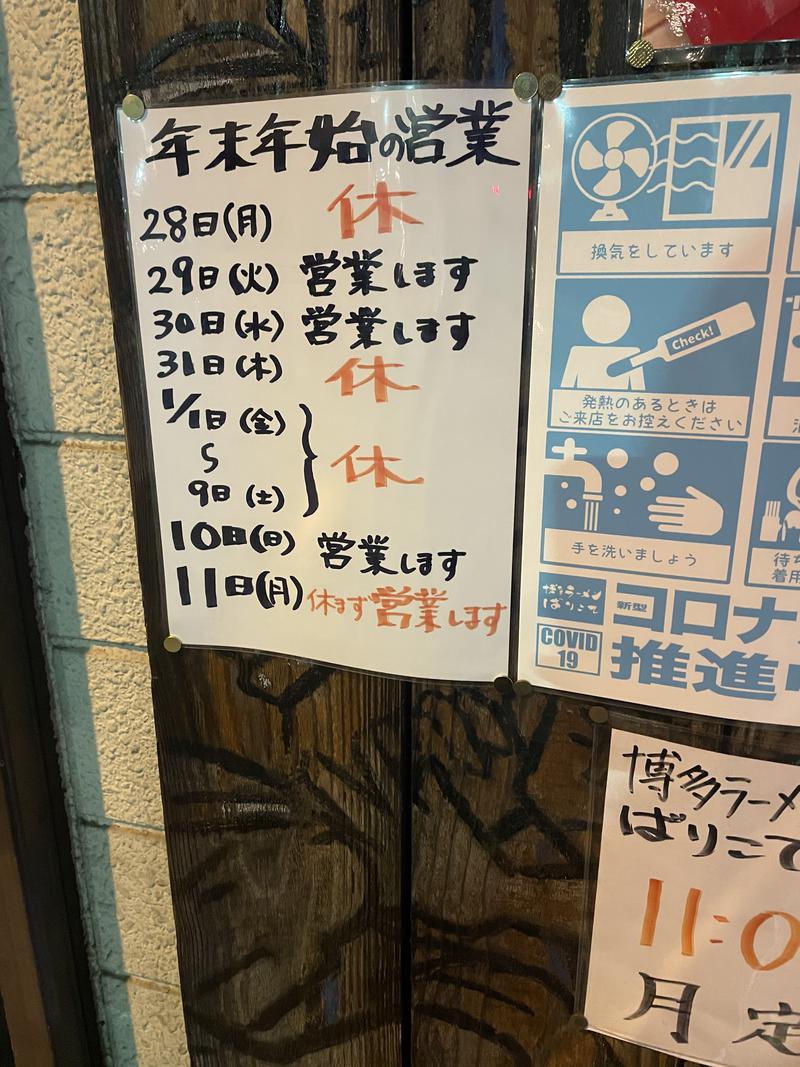 年末年始の営業
28日(月) 休
29日(火) 営業します
30日(水) 営業します
31日(木) 休
1/1日(金)
〜
9日(土)
休
10日(日) 営業します
11日(月) 休まず営業します
換気をしています
Check!
発熱のあるときは
ご来店をお控えください
手を洗いましょう
待ち
着用
博多ラーメン
ばりこて
新型コロナ
COVID
19
推進中
博多ラーメ
ばりこて
11:0
月 定